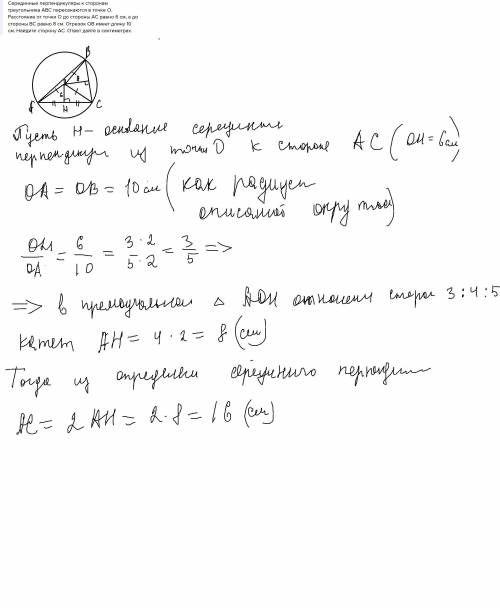 Серединные перпендикуляры к сторонам
треугольника ABC пересекаются в точке O.
Расстояние от точки O до стороны AC равно 6 см, а до
стороны BC равно 8 см. Отрезок OB имеет длину 10
см. Найдите сторону AC. Ответ дайте в сантиметрах.
B
8
6
A
C
H
Пусть H - основание
из точки O к стороне AC (OH = 6см)
OA = OB = 10 см (как радиусы
описанной окружности)
OH/OA = 6/10 = 3·2/5·2 = 3/5 =>
=> в △ AOH отношении сторон 3:4:5
катет AH = 4·2 = 8 (см)
Тогда из серединного
AC = 2AH = 2·8 = 16 (см)